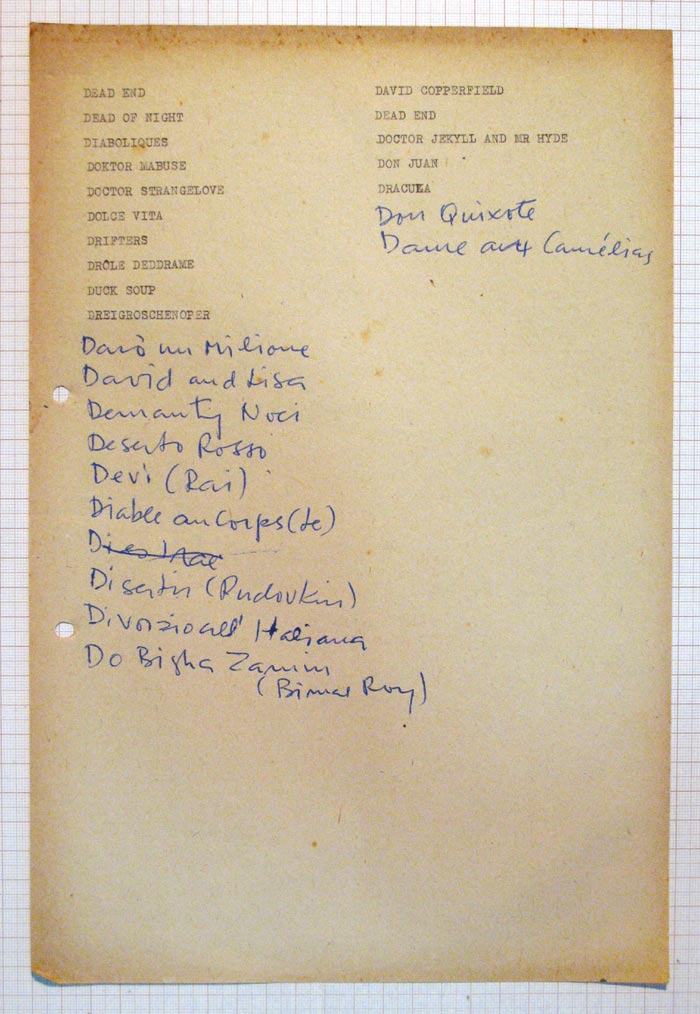 DEAD END
DEAD OF NIGHT
DIABOLIQUES
DOKTOR MABUSE
DOCTOR STRANGELOVE
DOLCE VITA
DRIFTERS
DRÔLE DEDDRAME
DUCK SOUP
DREIGROSCHENOPER
Darò un Milione
David and Lisa
Demanty Noci
Deserto Rosso
Devi (Rai)
Diable au Corps (le)
Dies Irae
Disertir (Pudovkin)
Divorzio all' Italiana
Do Bigha Zamin
(Bimal Roy)
DAVID COPPERFIELD
DEAD END
DOCTOR JEKYLL AND MR HYDE
DON JUAN
DRACULA
Don Quixote
Dame aux Camélias